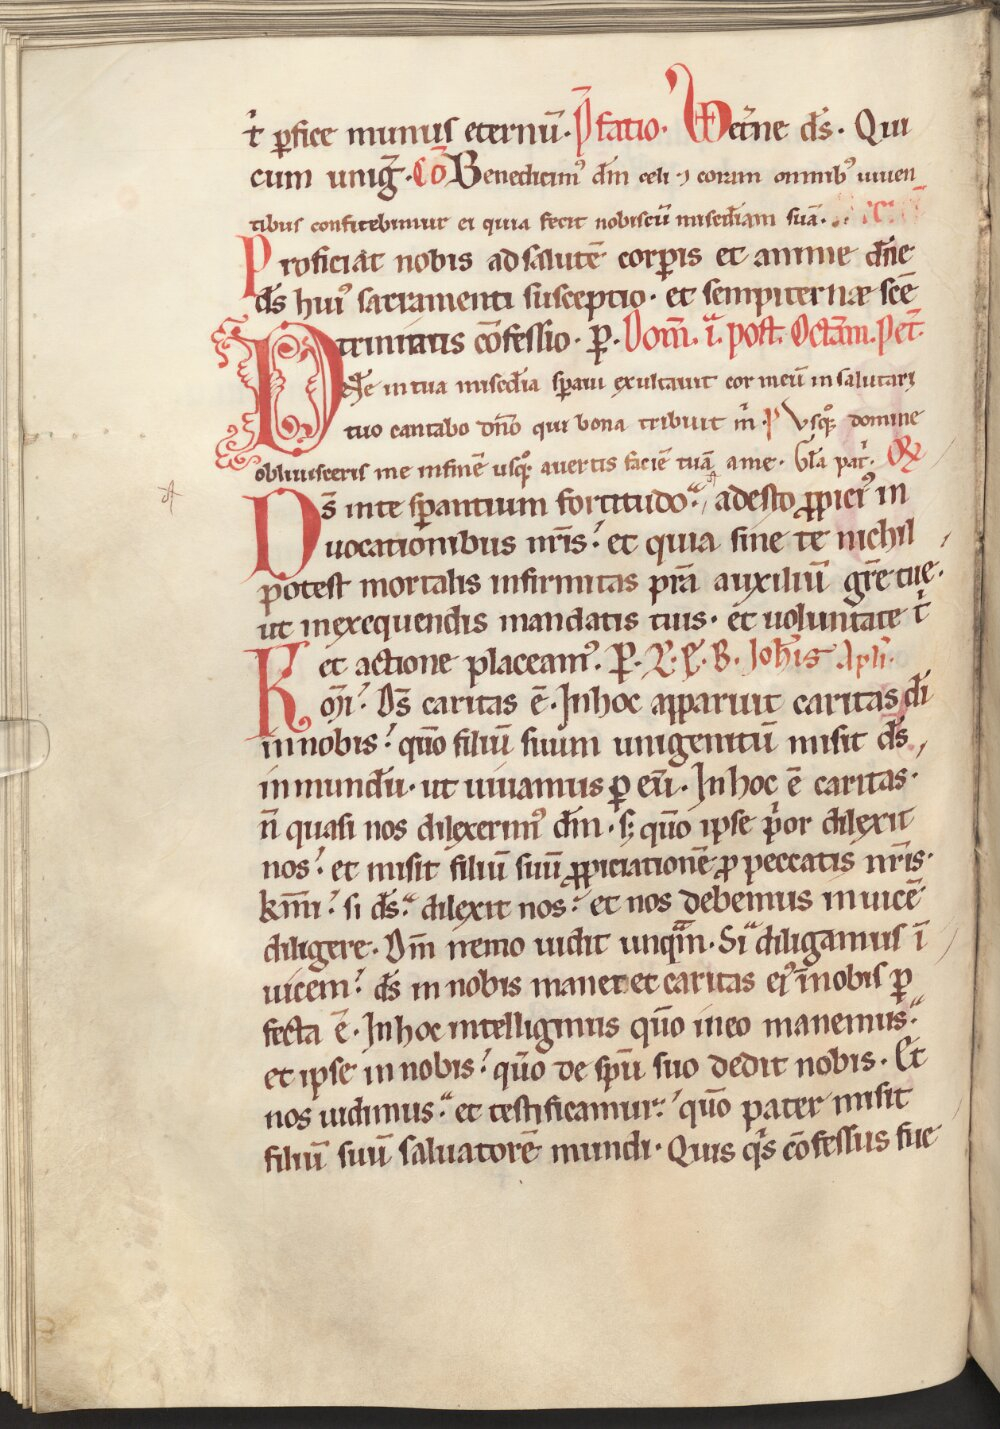 t̉ ꝑfice munus eternū. P̄fatio. VD et̉ne ds̄. Qui
cum unig̅. Cō Benedicim᾽ dm̄ celi ⁊ coram omnib᾽ uiuen
tibus confitebimur ei quia fecit nobiscū miscd̄iam suā.
Proficiat nobis ad salutē corꝑis et anime dn̄e
ds̄ hui᾽ sacramenti susceptio. et sempiternæ scē
trinitatis cōfessio. ꝑ. Dom̄. i.ͣ post Octām. Pet̄.
Dn̄e in tua miscd̄ia sꝑaui exultauit cor meū in salutari
tuo cantabo dn̄o qui bona tribuit m̉. P Vsq᷒ domine
obliuisceris me in finē usq᷒ auertis faciē tuā a me. Gl̄a pat̉. Oꝝ
Ds̄ in te sꝑantium fortitudo. adesto ꝓpici᾽ in
uocationibus nr̄is. et quia sine te nichil
potest mortalis infirmitas pr̄a auxiliū gr̄e tue.
ut in exequendis mandatis tuis. et uoluntate t̉
et actione placeam᾽. ꝑ. L. E. B. Joh̄is Apl̄i.
Km̄i. Ds̄ caritas ē. In hoc apparuit caritas di̅
in nobis. quō filiū suum unigenitū misit ds̄
in mundū. ut uiuamus ꝑ eū. In hoc ē caritas.
n̄ quasi nos dilexerim᾽ dm̄. s; quō ipse p̉or dilexit
nos. et misit filiū suū ꝓpiciationē ꝓ peccatis nr̄is.
km̄i. si ds̄ dilexit nos. et nos debemus inuicē
diligere. Dm̄ nemo uidit unqᷓm. Si diligamus ī
uicem. ds̄ in nobis manet et caritas ei᾽ ī nobis ꝑ
fecta ē. In hoc intelligimus quō in eo manemus.
et ipse in nobis. quō de spū suo dedit nobis. Et
nos uidimus. et testificamur. quō pater misit
filiū suū saluatorē mundi. Quis q̉s cōfessus fue